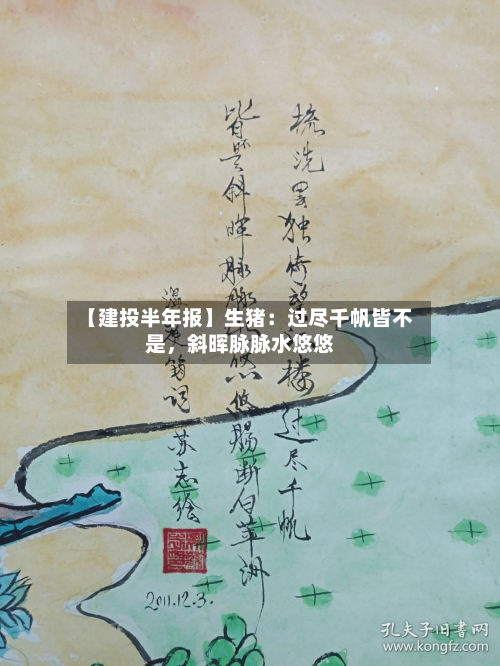 梳洗罢独倚望楼过尽千帆
皆是斜晖脉脉悠悠肠断白苹洲
温庭筠词 苏志绘
2011.12.3.
【建投半年报】生猪：过尽千帆皆不
是，斜晖脉脉水悠悠
孔夫子旧书网
www.kongfz.com